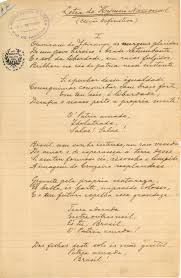 Letra do Hymno Nacional
I
Ouviram do Ypiranga as margens placidas
De um povo heroico o brado retumbante,
E o sol da liberdade, em raios fulgidos,
Brilhou no céo da patria nesse instante.
Se o penhor dessa igualdade
Conseguimos conquistar com braço forte,
Em teu seio, ó Liberdade,
Desafia o nosso peito a propria morte!
O Patria amada,
Idolatrada,
Salve! Salve!
Brasil, um sonho intenso, um raio vivido
De amor e de esperança á terra desce,
Se em teu formoso céo, risonho e limpido,
A imagem do Cruzeiro resplandece.
Gigante pela propria natureza,
És bello, és forte, impavido colosso,
E o teu futuro espelha essa grandeza.
Terra adorada
Entre outras mil,
És tu, Brasil,
O Patria amada!
Dos filhos deste solo és mãe gentil,
Patria amada,
Brasil!